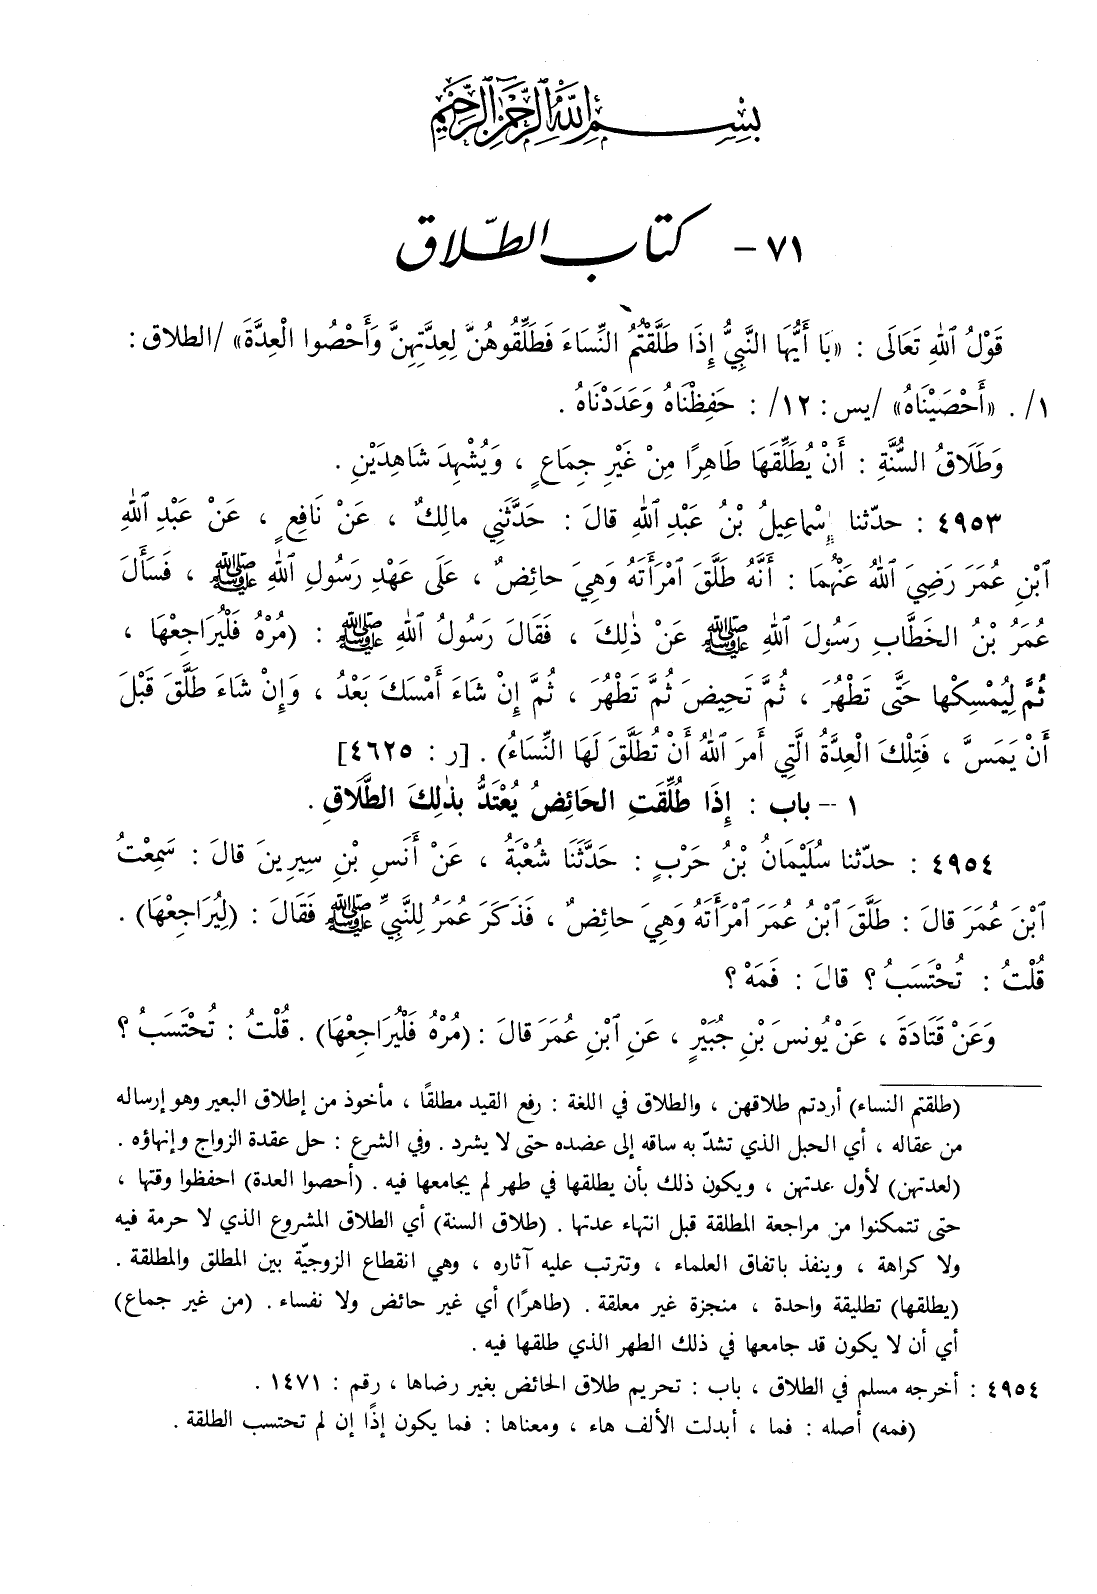 بِسْمِ ٱللَّهِ ٱلرَّحْمَٰنِ ٱلرَّحِيمِ
٧١ - كتاب الطّلاق
قَوْلُ ٱللهِ تَعَالَى : «يَا أَيُّهَا النَّبِيُّ إِذَا طَلَّقْتُمُ النِّسَاءَ فَطَلِّقُوهُنَّ لِعِدَّتِهِنَّ وَأَحْصُوا الْعِدَّةَ» /الطلاق :
١/ . «أَحْصَيْنَاهُ» /يس : ١٢/ : حَفِظْنَاهُ وَعَدَدْنَاهُ .
وَطَلَاقُ السُّنَّةِ : أَنْ يُطَلِّقَهَا طَاهِرًا مِنْ غَيْرِ جِمَاعٍ ، وَيُشْهِدَ شَاهِدَيْنِ .
٤٩٥٣ : حدّثنا إِسْماعِيلُ بْنُ عَبْدِ ٱللهِ قالَ : حَدَّثَنِي مالِكٌ ، عَنْ نَافِعٍ ، عَنْ عَبْدِ ٱللهِ
ٱبْنِ عُمَرَ رَضِيَ ٱللهُ عَنْهُمَا : أَنَّهُ طَلَّقَ ٱمْرَأَتَهُ وَهِيَ حائِضٌ ، عَلَى عَهْدِ رَسُولِ ٱللهِ ﷺ ، فَسَأَلَ
عُمَرُ بْنُ الخَطَّابِ رَسُولَ ٱللهِ ﷺ عَنْ ذٰلِكَ ، فَقَالَ رَسُولُ ٱللهِ ﷺ : (مُرْهُ فَلْيُرَاجِعْهَا ،
ثُمَّ لِيُمْسِكْها حَتَّى تَطْهُرَ ، ثُمَّ تَحِيضَ ثُمَّ تَطْهُرَ ، ثُمَّ إِنْ شَاءَ أَمْسَكَ بَعْدُ ، وَإِنْ شَاءَ طَلَّقَ قَبْلَ
أَنْ يَمَسَّ ، فَتِلْكَ الْعِدَّةُ الَّتِي أَمَرَ ٱللهُ أَنْ تُطَلَّقَ لَهَا النِّسَاءُ) . [ر : ٤٦٢٥]
١ - باب : إِذَا طُلِّقَتِ الحَائِضُ يُعْتَدُّ بِذٰلِكَ الطَّلَاقِ .
٤٩٥٤ : حدّثنا سُلَيْمَانُ بْنُ حَرْبٍ : حَدَّثَنَا شُعْبَةُ ، عَنْ أَنَسِ بْنِ سِيرِينَ قالَ : سَمِعْتُ
ٱبْنَ عُمَرَ قالَ : طَلَّقَ ٱبْنُ عُمَرَ ٱمْرَأَتَهُ وَهِيَ حائِضٌ ، فَذَكَرَ عُمَرُ لِلنَّبِيِّ ﷺ فَقَالَ : (لِيُرَاجِعْهَا) .
قُلْتُ : تُحْتَسَبُ ؟ قالَ : فَمَهْ ؟
وَعَنْ قَتَادَةَ ، عَنْ يُونُسَ بْنِ جُبَيْرٍ ، عَنِ ٱبْنِ عُمَرَ قالَ : (مُرْهُ فَلْيُرَاجِعْهَا) . قُلْتُ : تُحْتَسَبُ ؟
(طلقتم النساء) أردتم طلاقهن ، والطلاق في اللغة : رفع القيد مطلقًا ، مأخوذ من إطلاق البعير وهو إرساله
من عقاله ، أي الحبل الذي تشدّ به ساقه إلى عضده حتى لا يشرد . وفي الشرع : حل عقدة الزواج وإنهاؤه .
(لعدتهن) لأول عدتهن ، ويكون ذلك بأن يطلقها في طهر لم يجامعها فيه . (أحصوا العدة) احفظوا وقتها ،
حتى تتمكنوا من مراجعة المطلقة قبل انتهاء عدتها . (طلاق السنة) أي الطلاق المشروع الذي لا حرمة فيه
ولا كراهة ، وينفذ باتفاق العلماء ، وتترتب عليه آثاره ، وهي انقطاع الزوجيّة بين المطلق والمطلقة .
(يطلقها) تطليقة واحدة ، منجزة غير معلقة . (طاهرًا) أي غير حائض ولا نفساء . (من غير جماع)
أي أن لا يكون قد جامعها في ذلك الطهر الذي طلقها فيه .
٤٩٥٤ : أخرجه مسلم في الطلاق ، باب : تحريم طلاق الحائض بغير رضاها ، رقم : ١٤٧١ .
(فمه) أصله : فما ، أبدلت الألف هاء ، ومعناها : فما يكون إذًا إن لم تحتسب الطلقة .